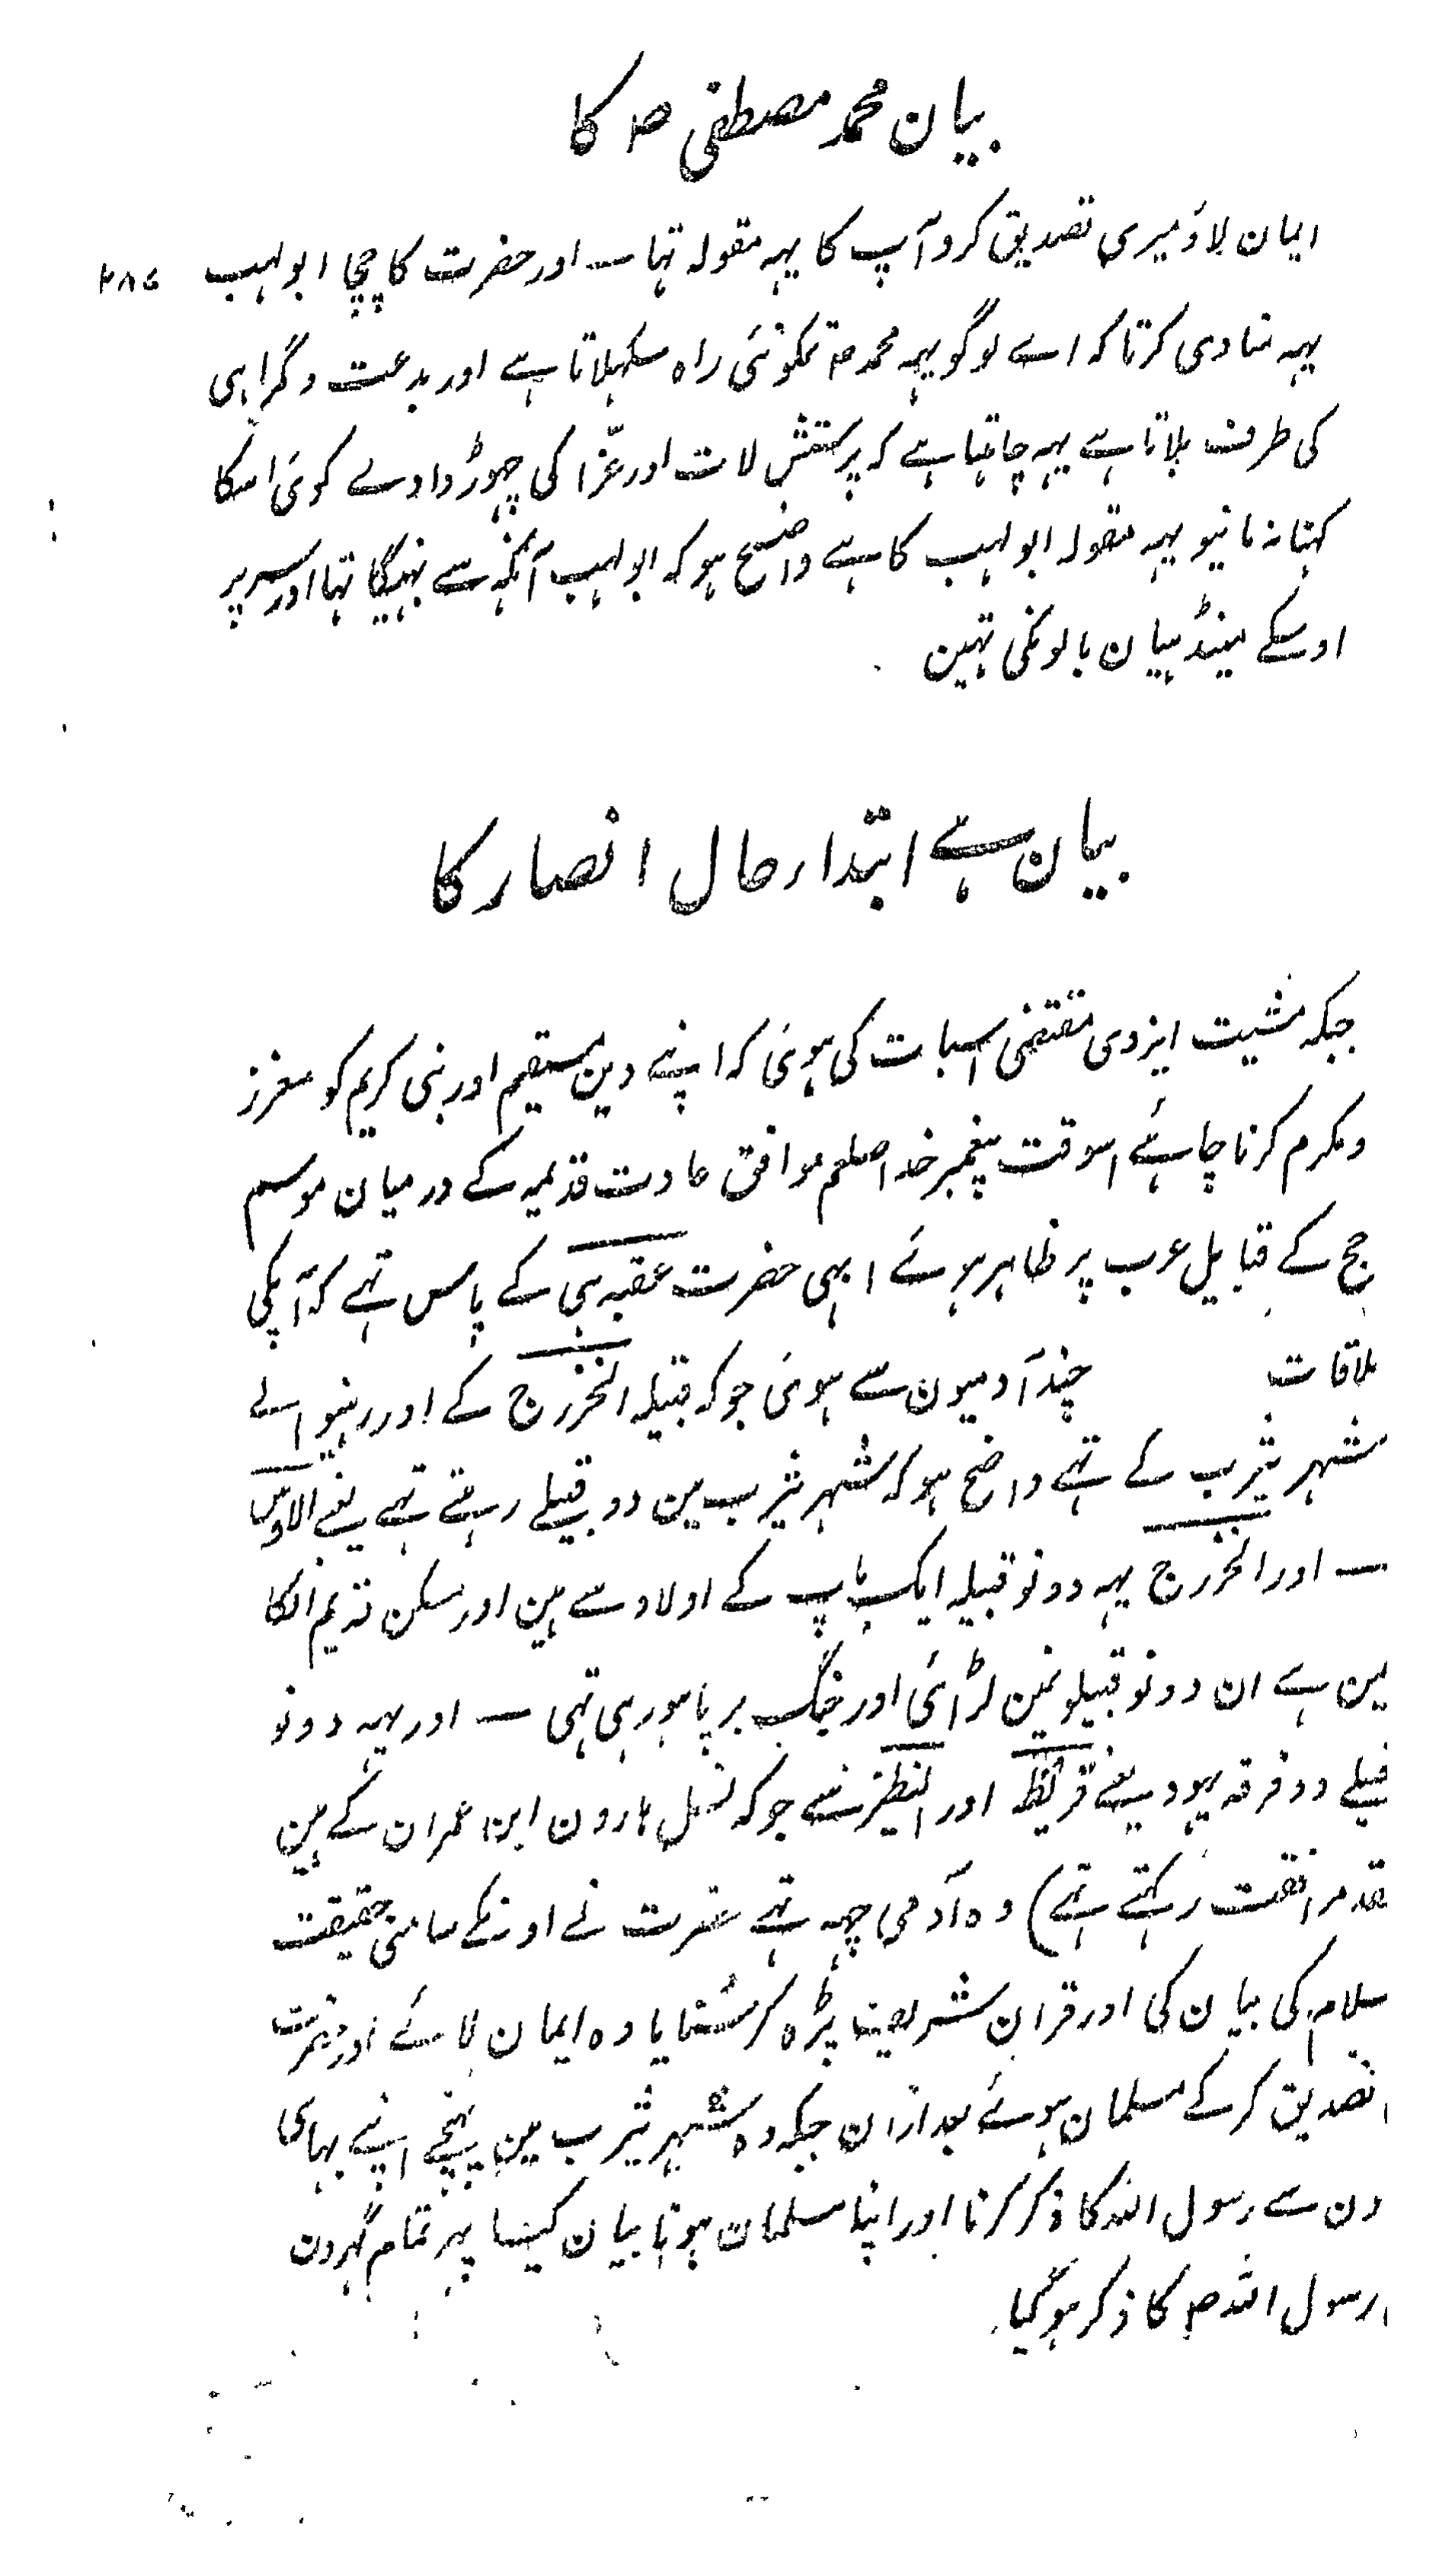 بیان محمد مصطفی ص کا
ایمان لاؤ میری تصدیق کرو آپ کا یہہ مقولہ تہا ــ اور حضرت کا چچا ابو لہب
یہہ منادی کرتا کہ اے لوگو یہہ محمد ص تمکو نئی راہ سکہلاتا ہے اور بدعت و گمراہی
کی طرف بلاتا ہے یہہ چاہتا ہے کہ پرستش لات اور عزّا کی چہوڑ وادے کوئی اسکا
کہنا نہ مانیو یہہ مقولہ ابو لہب کا ہے واضح ہو کہ ابو لہب آنکہہ سے بہینگا تہا اور سر پر
اوسکے مینڈہیان بالونکی تہین
بیان ہے ابتدار حال انصار کا
جبکہ مشیت ایزدی مقتضی اسبات کی ہوئی کہ اپنے دین مستقیم اور نبی کریم کو معزز
و مکرم کرنا چاہئے اسوقت پیغمبر خدا صلعم موافق عادت قدیمہ کے درمیان موسم
حج کے قبایل عرب پر ظاہر ہوئے ابہی حضرت عقبہ ہی کے پاس تہے کہ آپکی
ملاقات چند آدمیون سے ہوئی جو کہ قبیلہ الخزرج کے اور رہنیوالے
شہر یثرب کے تہے واضح ہو کہ شہر یثرب مین دو قبیلے رہتے تہے یعنے الاوس
ــ اور الخزرج یہہ دونو قبیلہ ایک باپ کے اولاد سے ہین اور مسکن قدیم انکا
مین ہے ان دونو قبیلونمین لڑائی اور جنگ برپا ہو رہی تہی ــ اور یہہ دونو
قبیلے دو فرقہ یہود یعنے قریظہ اور النظیر سے جو کہ نسل ہارون ابن عمران کے ہین
موافقت رکہتے تہے) وہ آدمی چہہ تہے حضرت نے اونکے سامنی حقیقت
سلام کی بیان کی اور قران شریف پڑہ کر سُنایا وہ ایمان لائے اور حضرت
تصدیق کر کے مسلمان ہوئے بعد ازان جبکہ وہ شہر یثرب مین پہنچے اپنے بہائی
ون سے رسول اللہ کا ذکر کرنا اور اپنا مسلمان ہونا بیان کیا پہر تمام گہرون
رسول اللہ ص کا ذکر ہو گیا